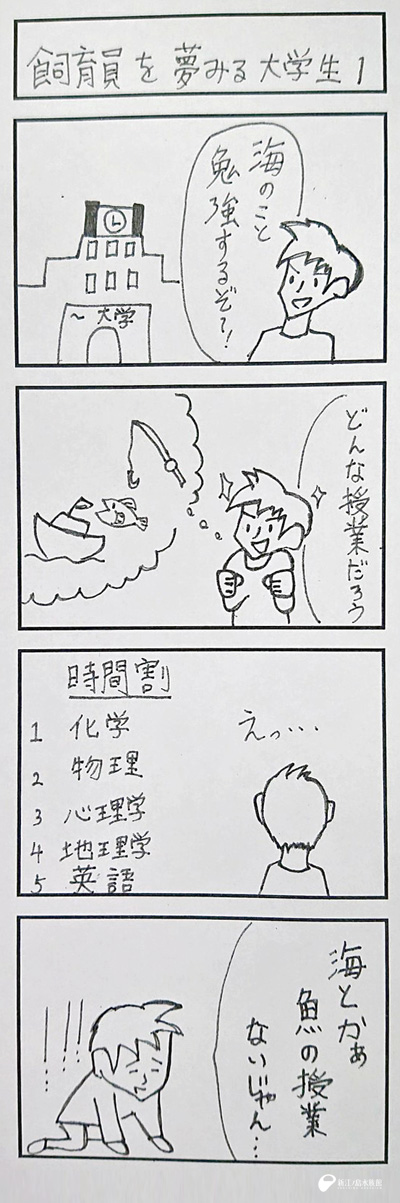 飼育員を夢みる大学生1
海のこと
勉強するぞ〜!
〜大学
どんな授業だろう
時間割
1 化学
2 物理
3 心理学
4 地理学
5 英語
えっ…
海とかぁ
魚の授業
ないじゃん…
新江ノ島水族館